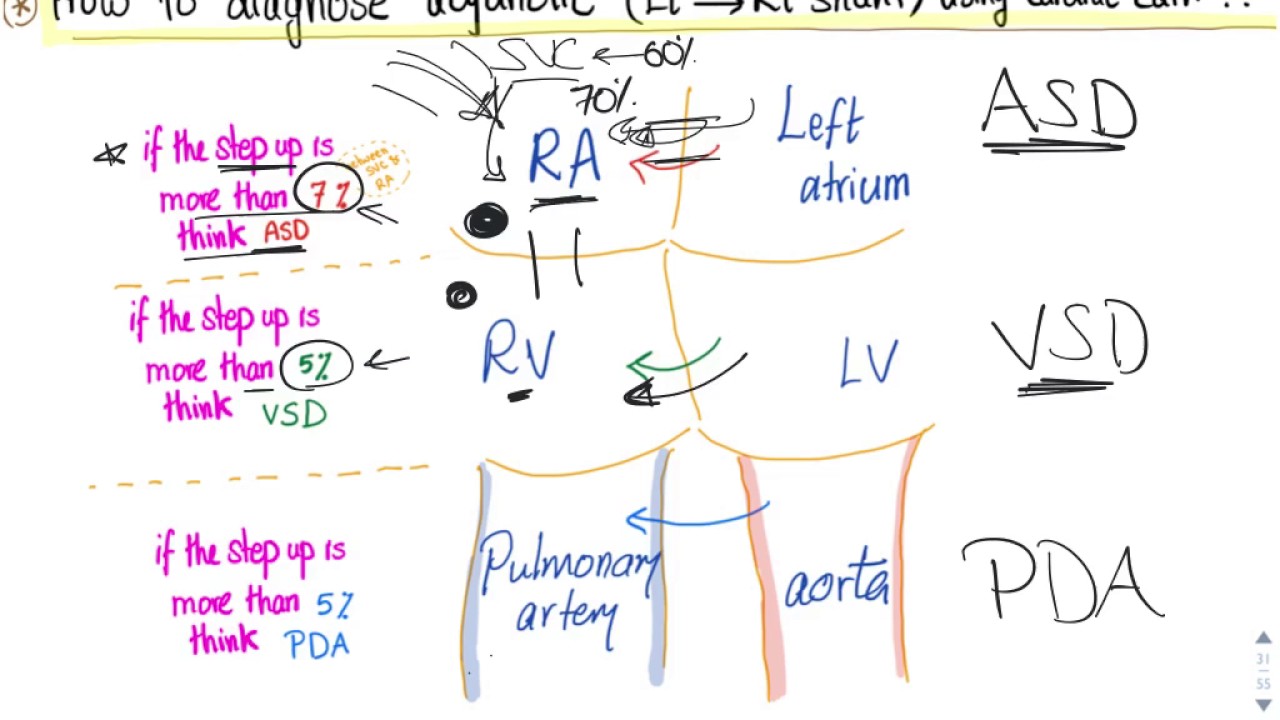 * How to diagnose acyanotic (Lt → Rt shunt) using cardiac cath ??
SVC ← 60%
70%
if the step up is
more than 7%
think ASD
between
SVC &
RA
RA
Left
atrium
ASD
if the step up is
more than 5%
think VSD
RV
LV
VSD
if the step up is
more than 5%
think PDA
Pulmonary
artery
aorta
PDA
31
55